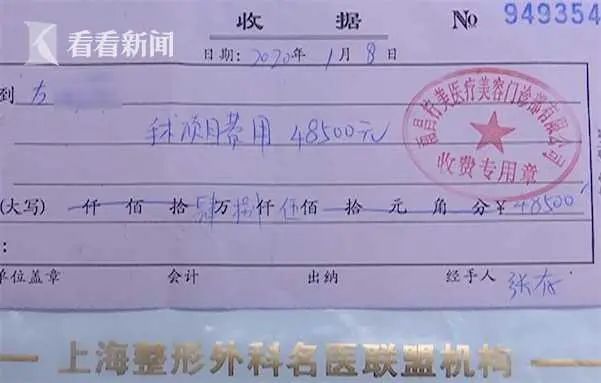 看看新闻
收 据 No 949354
日期: 2020 年 1 月 8 日
到 方
手术项目费用 48500元
医疗美容门诊部有限公司
收费专用章
(大写) 仟 佰 拾 肆 万 捌 仟 伍 佰 拾 元 角 分 ¥ 48500
:
单位盖章 会计 出纳 经手人 张存
上海整形外科名医联盟机构